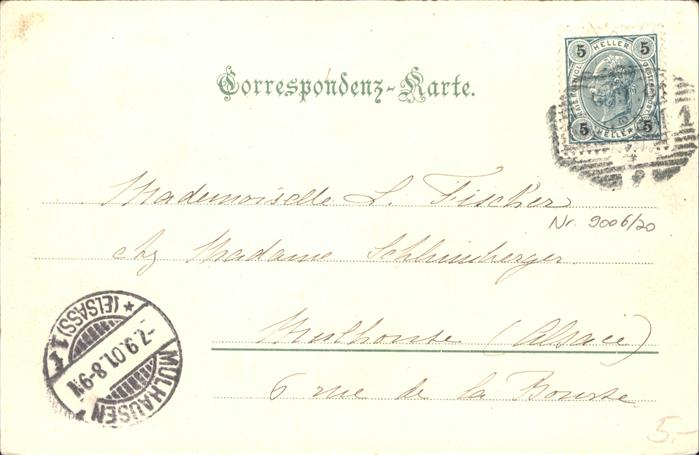 5 HELLER 5
5 HELLER 5
Correspondenz-Karte.
Mademoiselle L. Fischer
Nr. 9006/20
chz Madame Schlumberger
Mulhouse (Alsace)
6 rue de la Bourse
MÜLHAUSEN
(ELSASS) 1
-7.9.01.8-9N
5.-